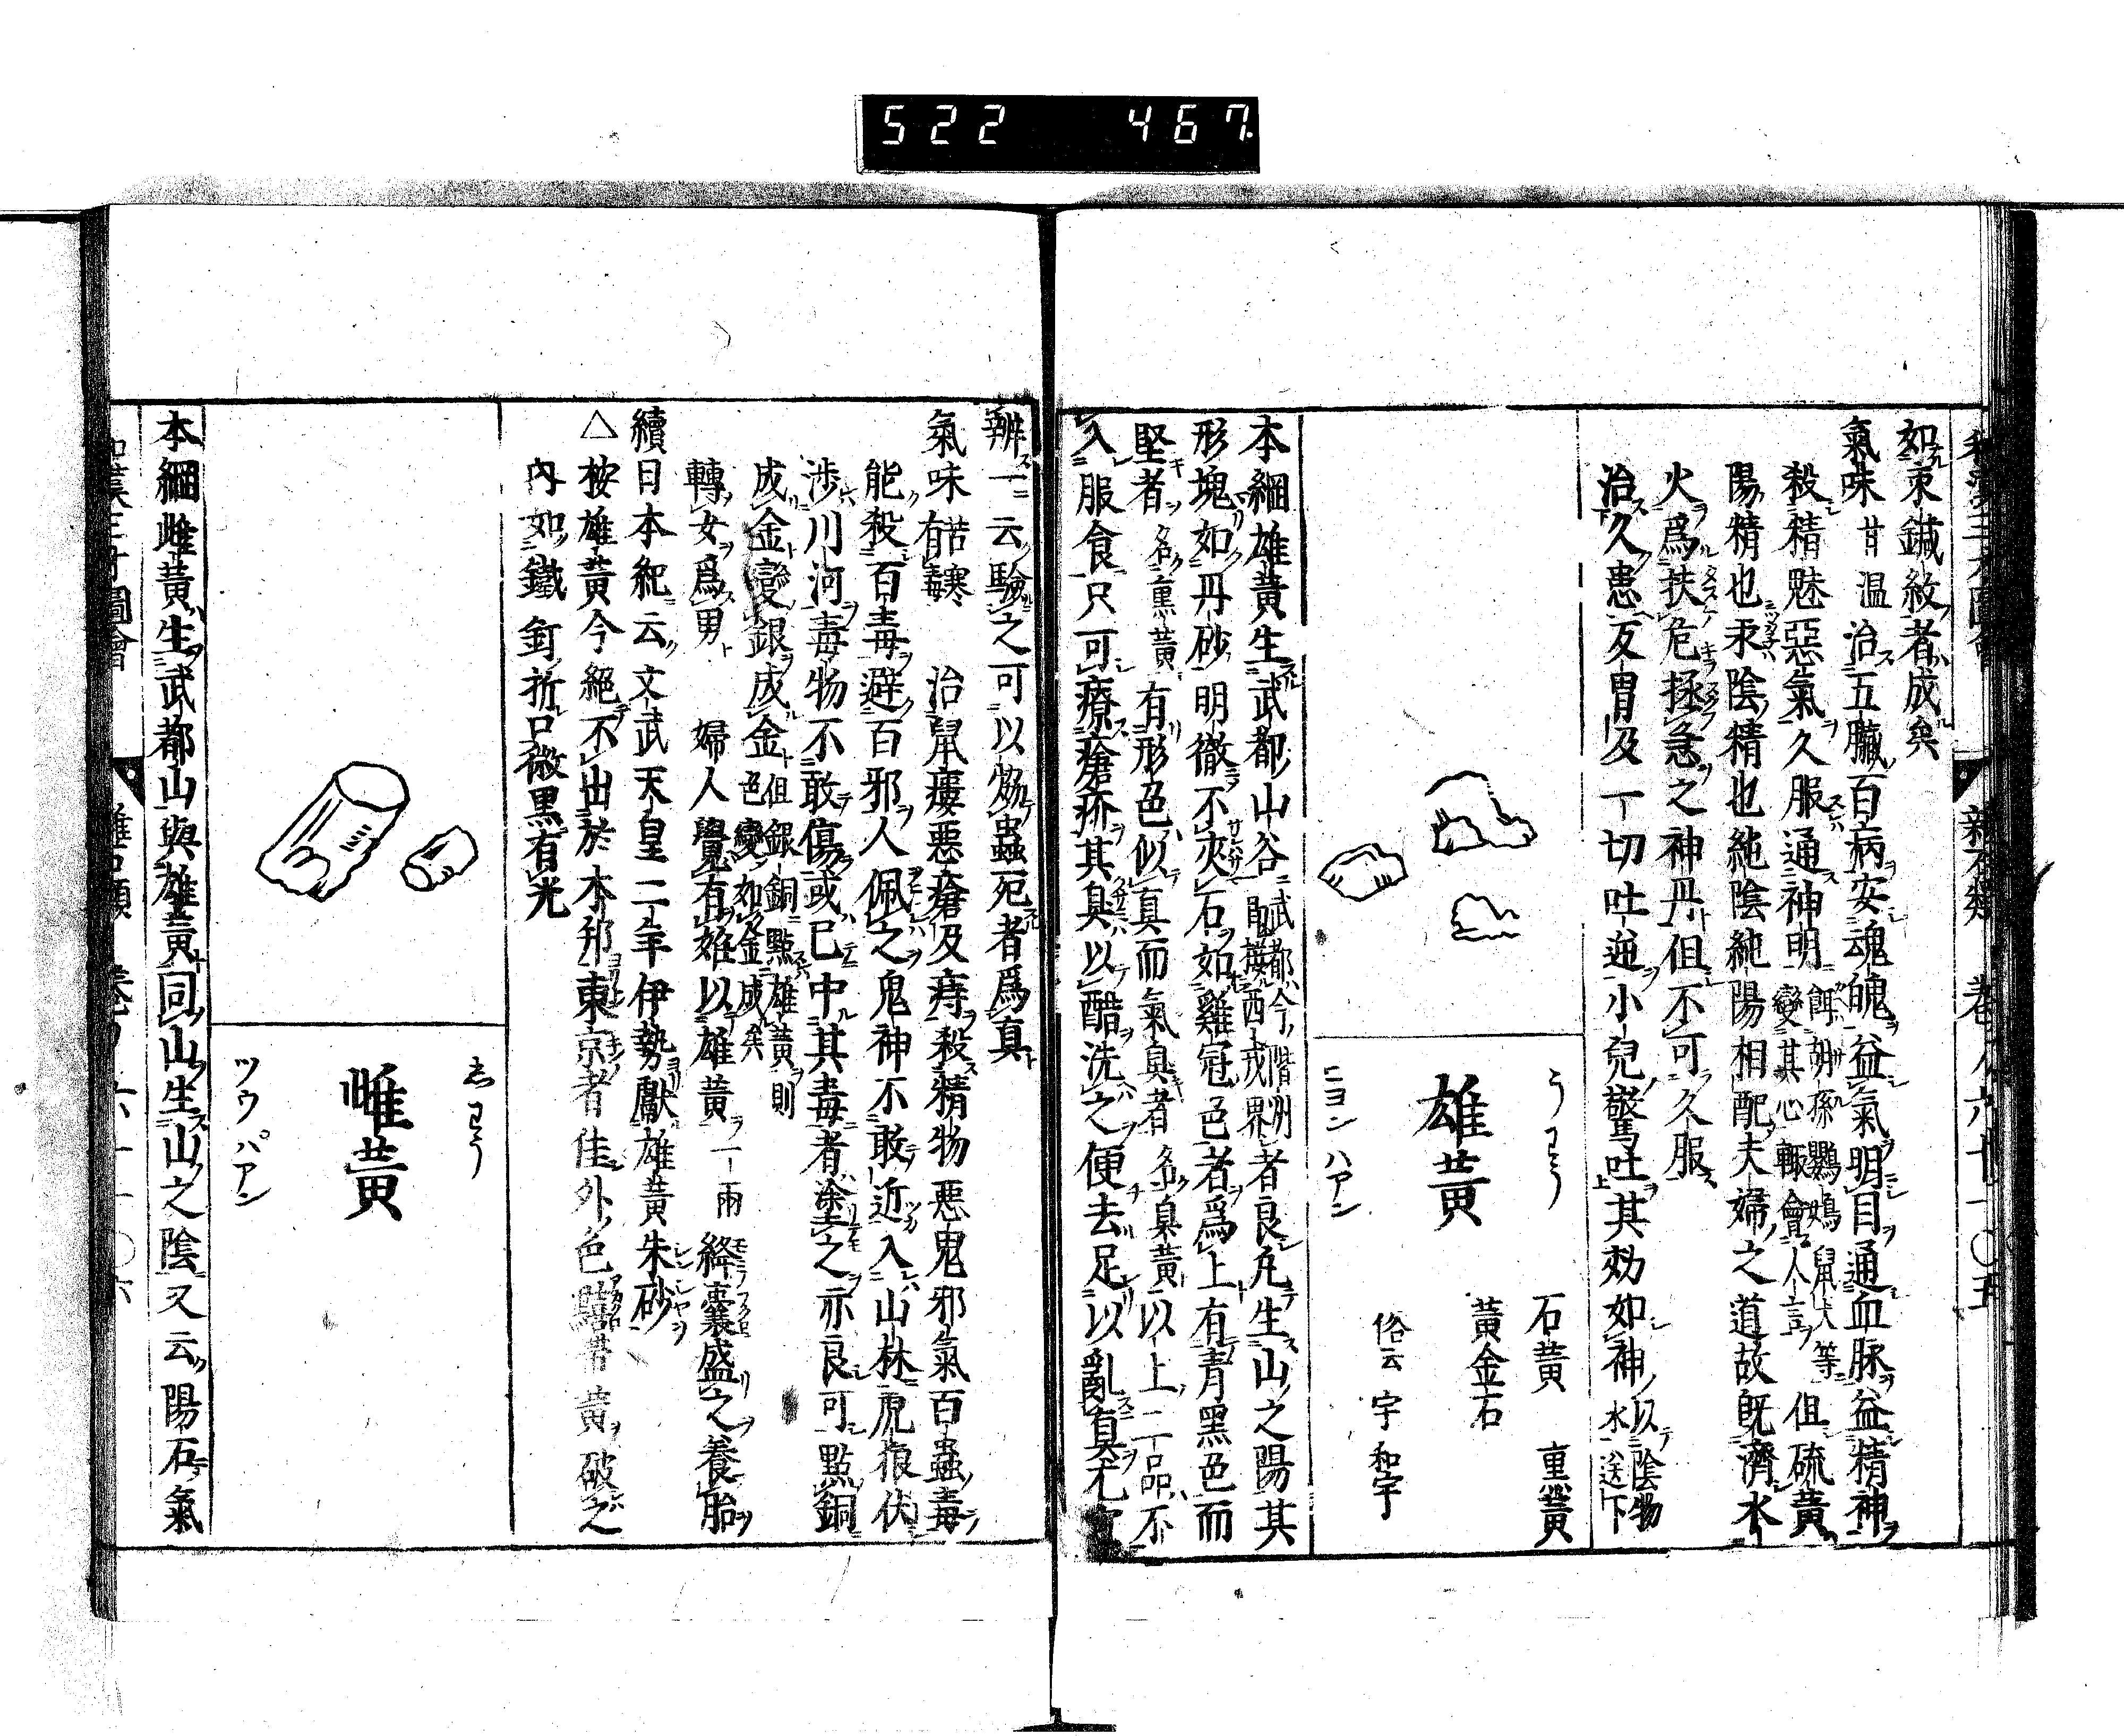 522 467
如束鍼紋者成矣
氣味 甘温 治五臟百病安魂魄益氣明目通血脉益精神
殺精魅惡氣久服通神明 餌胡孫鸚鵡鼠犬等變其心輙會人言 但硫黃
陽精也汞陰精也純陰純陽相配夫婦之道故既濟水
火爲扶危拯急之神丹但不可久服
治久患反胃及一切吐逆小兒驚吐其効如神 以陰陽水送下
うわう
雄黃
ニヨン ハアン
石黃 熏黃
黃金石
俗云 宇和宇
本綱雄黃生武都山谷 武都今階州即接西戎界 者良凡生山之陽其
形塊如丹砂明徹不夾石如雞冠色者爲上有青黑色而
堅者名熏黃有形色似真而氣臭者名臭黃以上二品不
入服食只可療瘡疥其臭以醋洗之便去足以亂真尤
新石類 卷ノ六十一 ○五
辨一云驗之可以𤍽蟲死者爲真
氣味 苦寒有毒 治鼠瘻惡瘡及痔殺精物惡鬼邪氣百蟲毒
能殺百毒避百邪人佩之鬼神不敢近入山林虎狼伏
渉川河毒物不敢傷或已中其毒者塗之亦良可點銅
成金變銀成金 但銀銅點雄黃則色變如金成矣
轉女爲男 婦人覺有娠以雄黃一兩絳囊盛之養胎
續日本紀云文武天皇二年伊勢獻雄黃朱砂
△按雄黃今絕不出於本邦東京者佳外色黯帶黃破之
內如鐵釘折口微黑有光
志わう
雌黃
ツウ パアン
本綱雌黃生武都山與雄黃同山生山之陰又云陽石氣
雜石類 卷ノ六十一 ○六